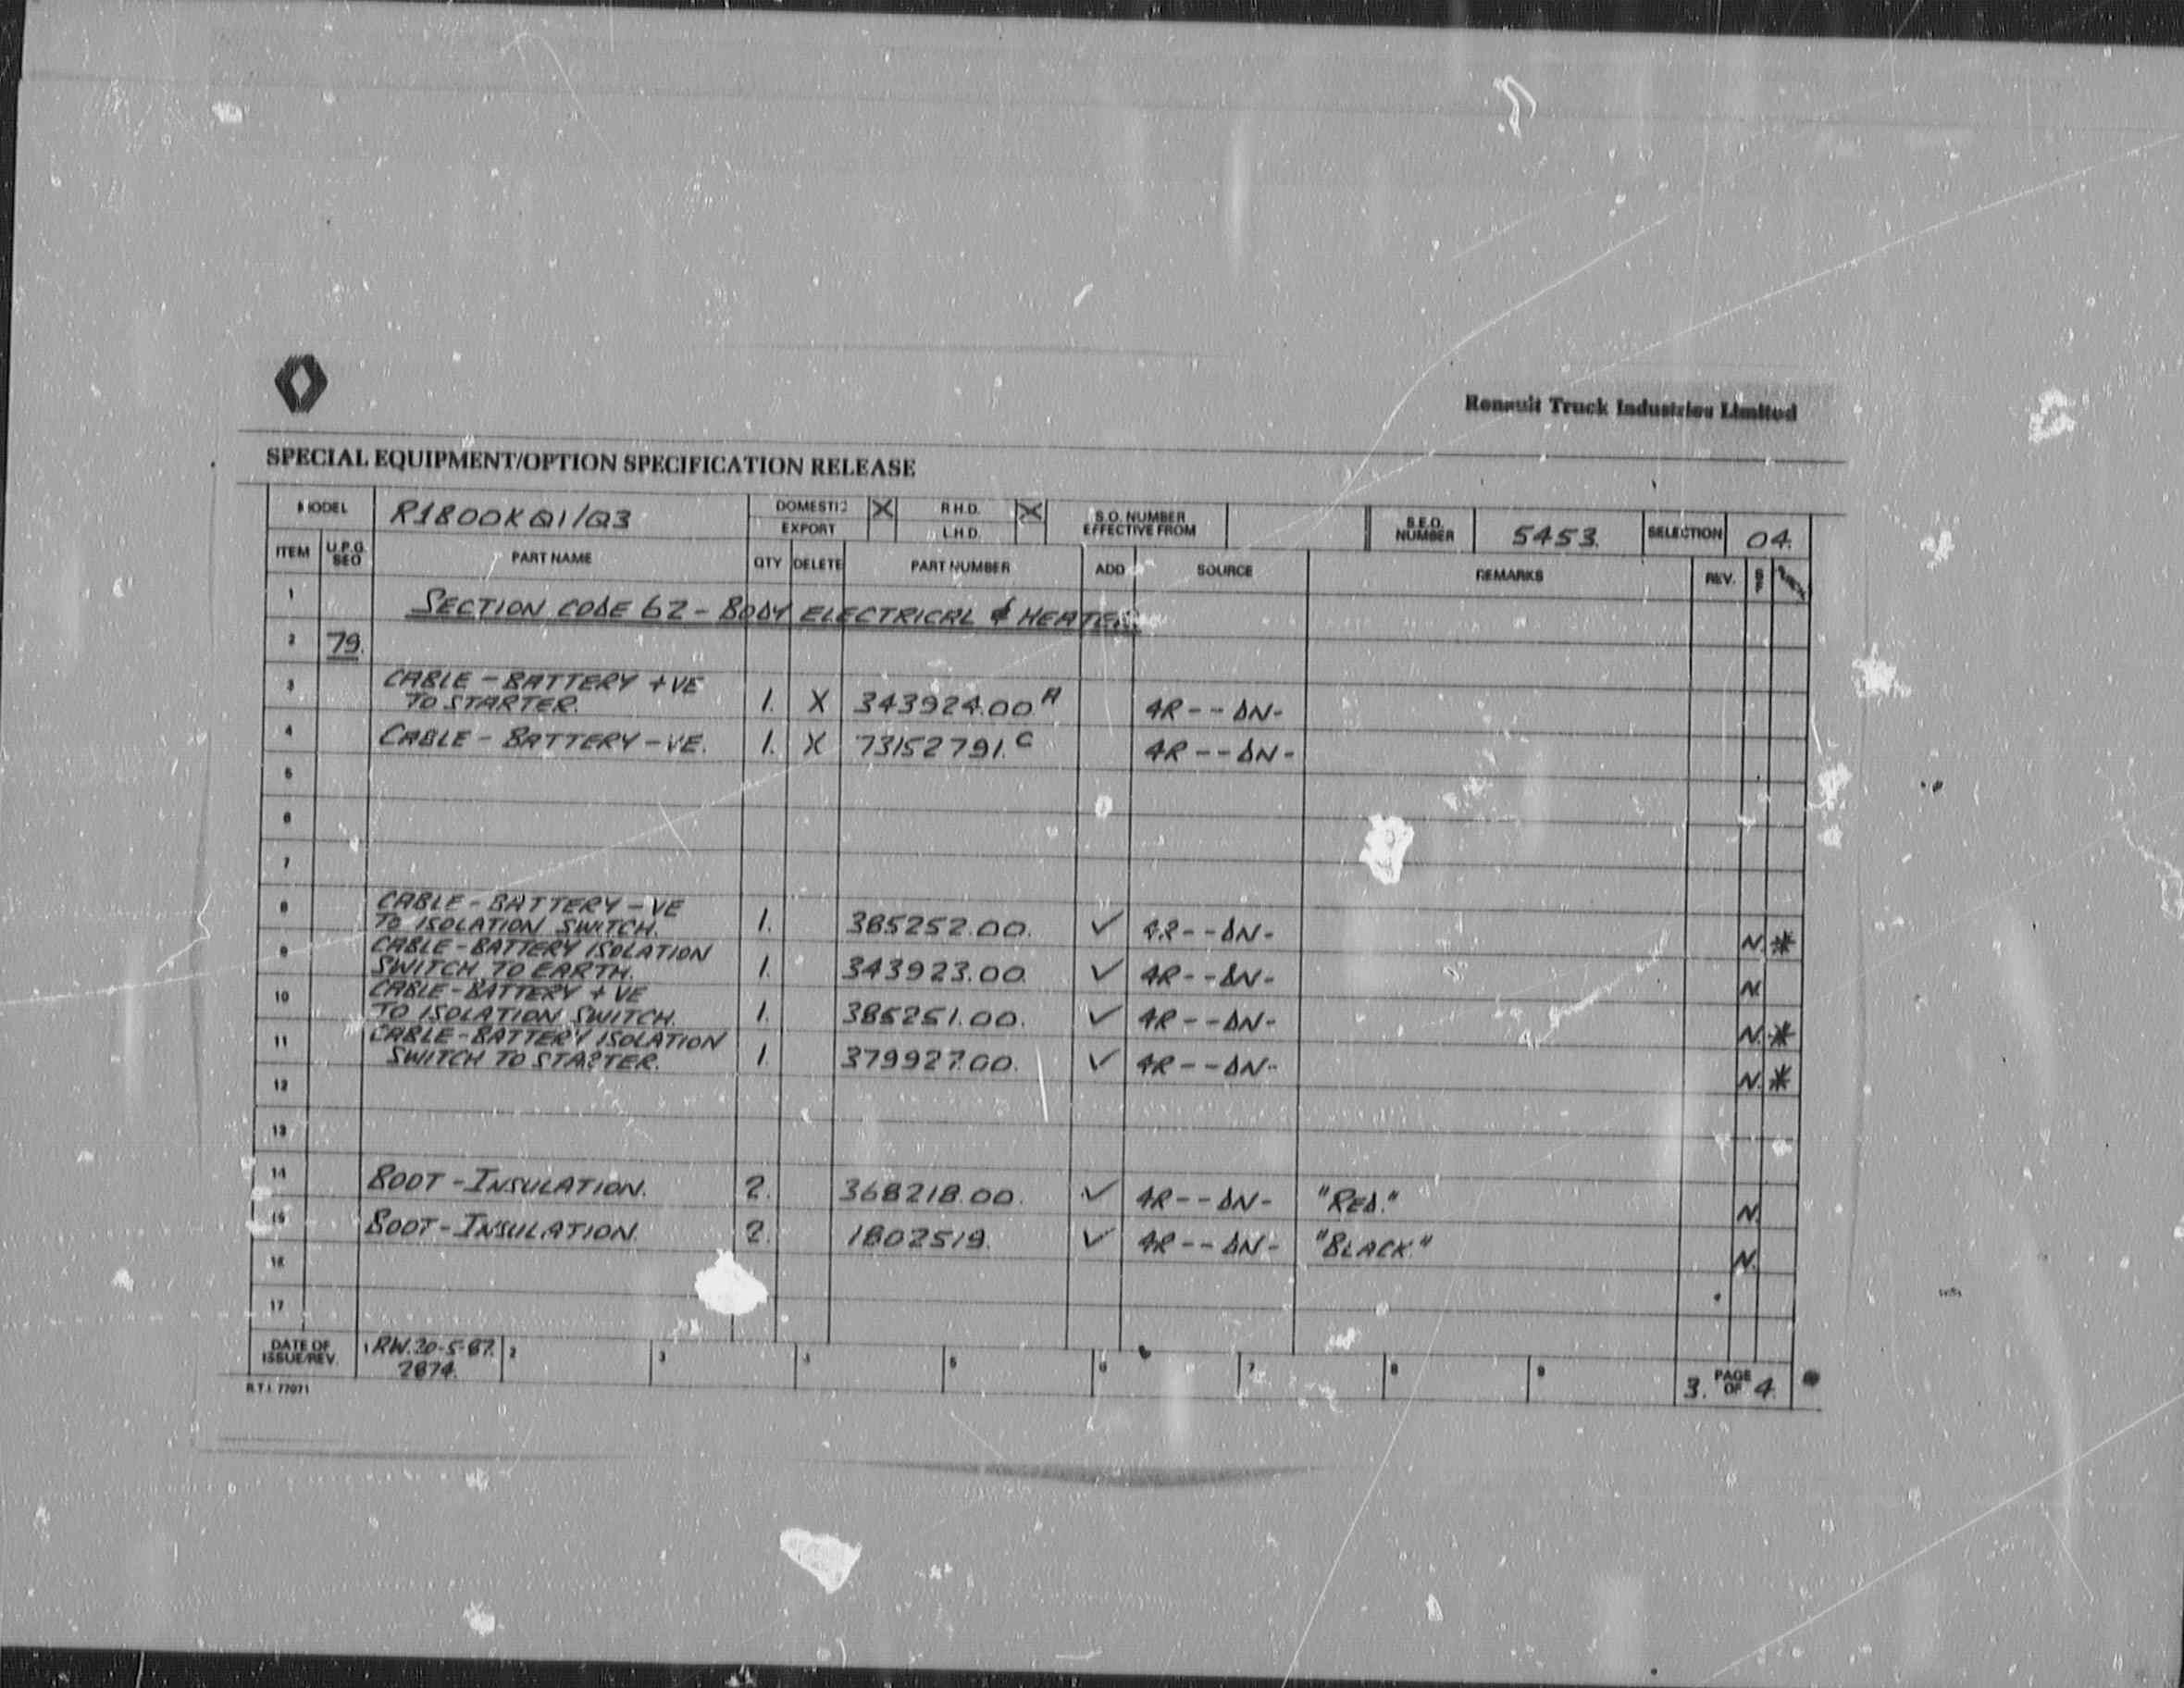 Renault Truck Industries Limited
SPECIAL EQUIPMENT/OPTION SPECIFICATION RELEASE
MODEL R1800KQ1/Q3 DOMESTIC X R.H.D. X S.O. NUMBER EFFECTIVE FROM S.E.O. NUMBER 5453. SELECTION 04.
EXPORT L.H.D.
ITEM U.P.G. SEQ PART NAME QTY DELETE PART NUMBER ADD SOURCE REMARKS REV.
1 SECTION CODE 62 - BODY ELECTRICAL & HEATER
2 79.
3 CABLE - BATTERY +VE
TO STARTER. 1. X 343924.00 A 4R--DN-
4 CABLE - BATTERY -VE. 1. X 73152791. C 4R--DN-
5
6
7
8 CABLE - BATTERY -VE
TO ISOLATION SWITCH. 1. 385252.00. ✓ 4R--DN- N. *
9 CABLE - BATTERY ISOLATION
SWITCH TO EARTH. 1. 343923.00. ✓ 4R--DN- N.
10 CABLE - BATTERY +VE
TO ISOLATION SWITCH. 1. 385251.00. ✓ 4R--DN- N. *
11 CABLE - BATTERY ISOLATION
SWITCH TO STARTER. 1. 379927.00. ✓ 4R--DN- N. *
12
13
14 BOOT - INSULATION. 2. 368218.00. ✓ 4R--DN- "RED." N.
15 BOOT - INSULATION. 2. 1802519. ✓ 4R--DN- "BLACK." N.
16
17
DATE OF ISSUE/REV. 1 RW. 20-5-87. 2 3 4 5 6 7 8 9 3. PAGE OF 4.
2874.
R.T.I. 77071